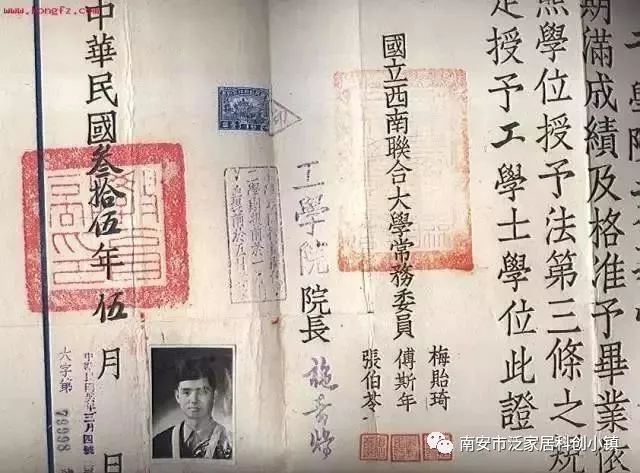 期滿成績及格准予畢業依
照學位授予法第三條之規
定授予工學士學位此證
國立西南聯合大學常務委員
梅貽琦
傅斯年
張伯苓
工學院院長 施嘉煬
中華民國叁拾伍年伍月 日
六字第79998
南安市泛家居科创小镇